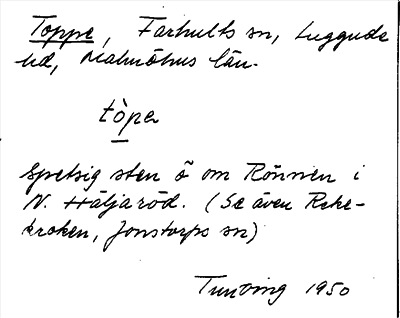 Toppe, Farhults sn, Luggude
hd, Malmöhus län.
tòpa
Spetsig sten ö om Rönnen i
N. Häljaröd. (Se även Reke-
kroken, Jonstorps sn)
Tunving 1950